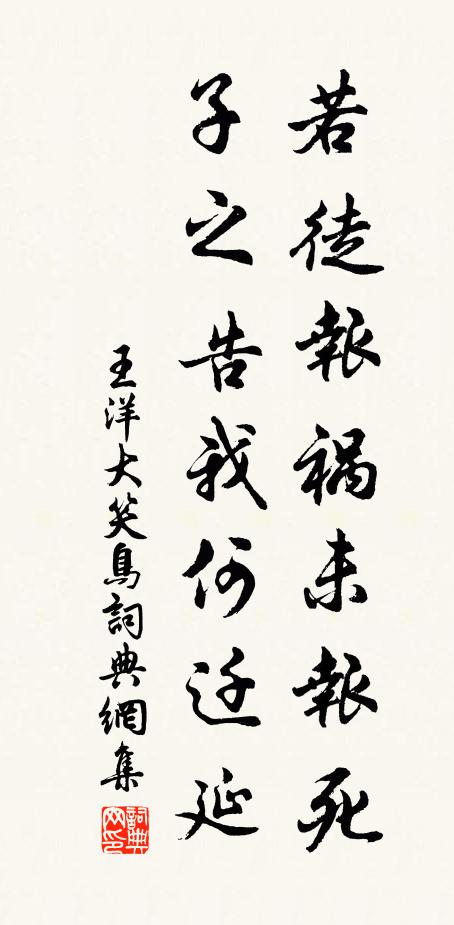 若徒報禍未報死
子之告我何迁延
王洋大笑鳥詞典網集
詞典网印